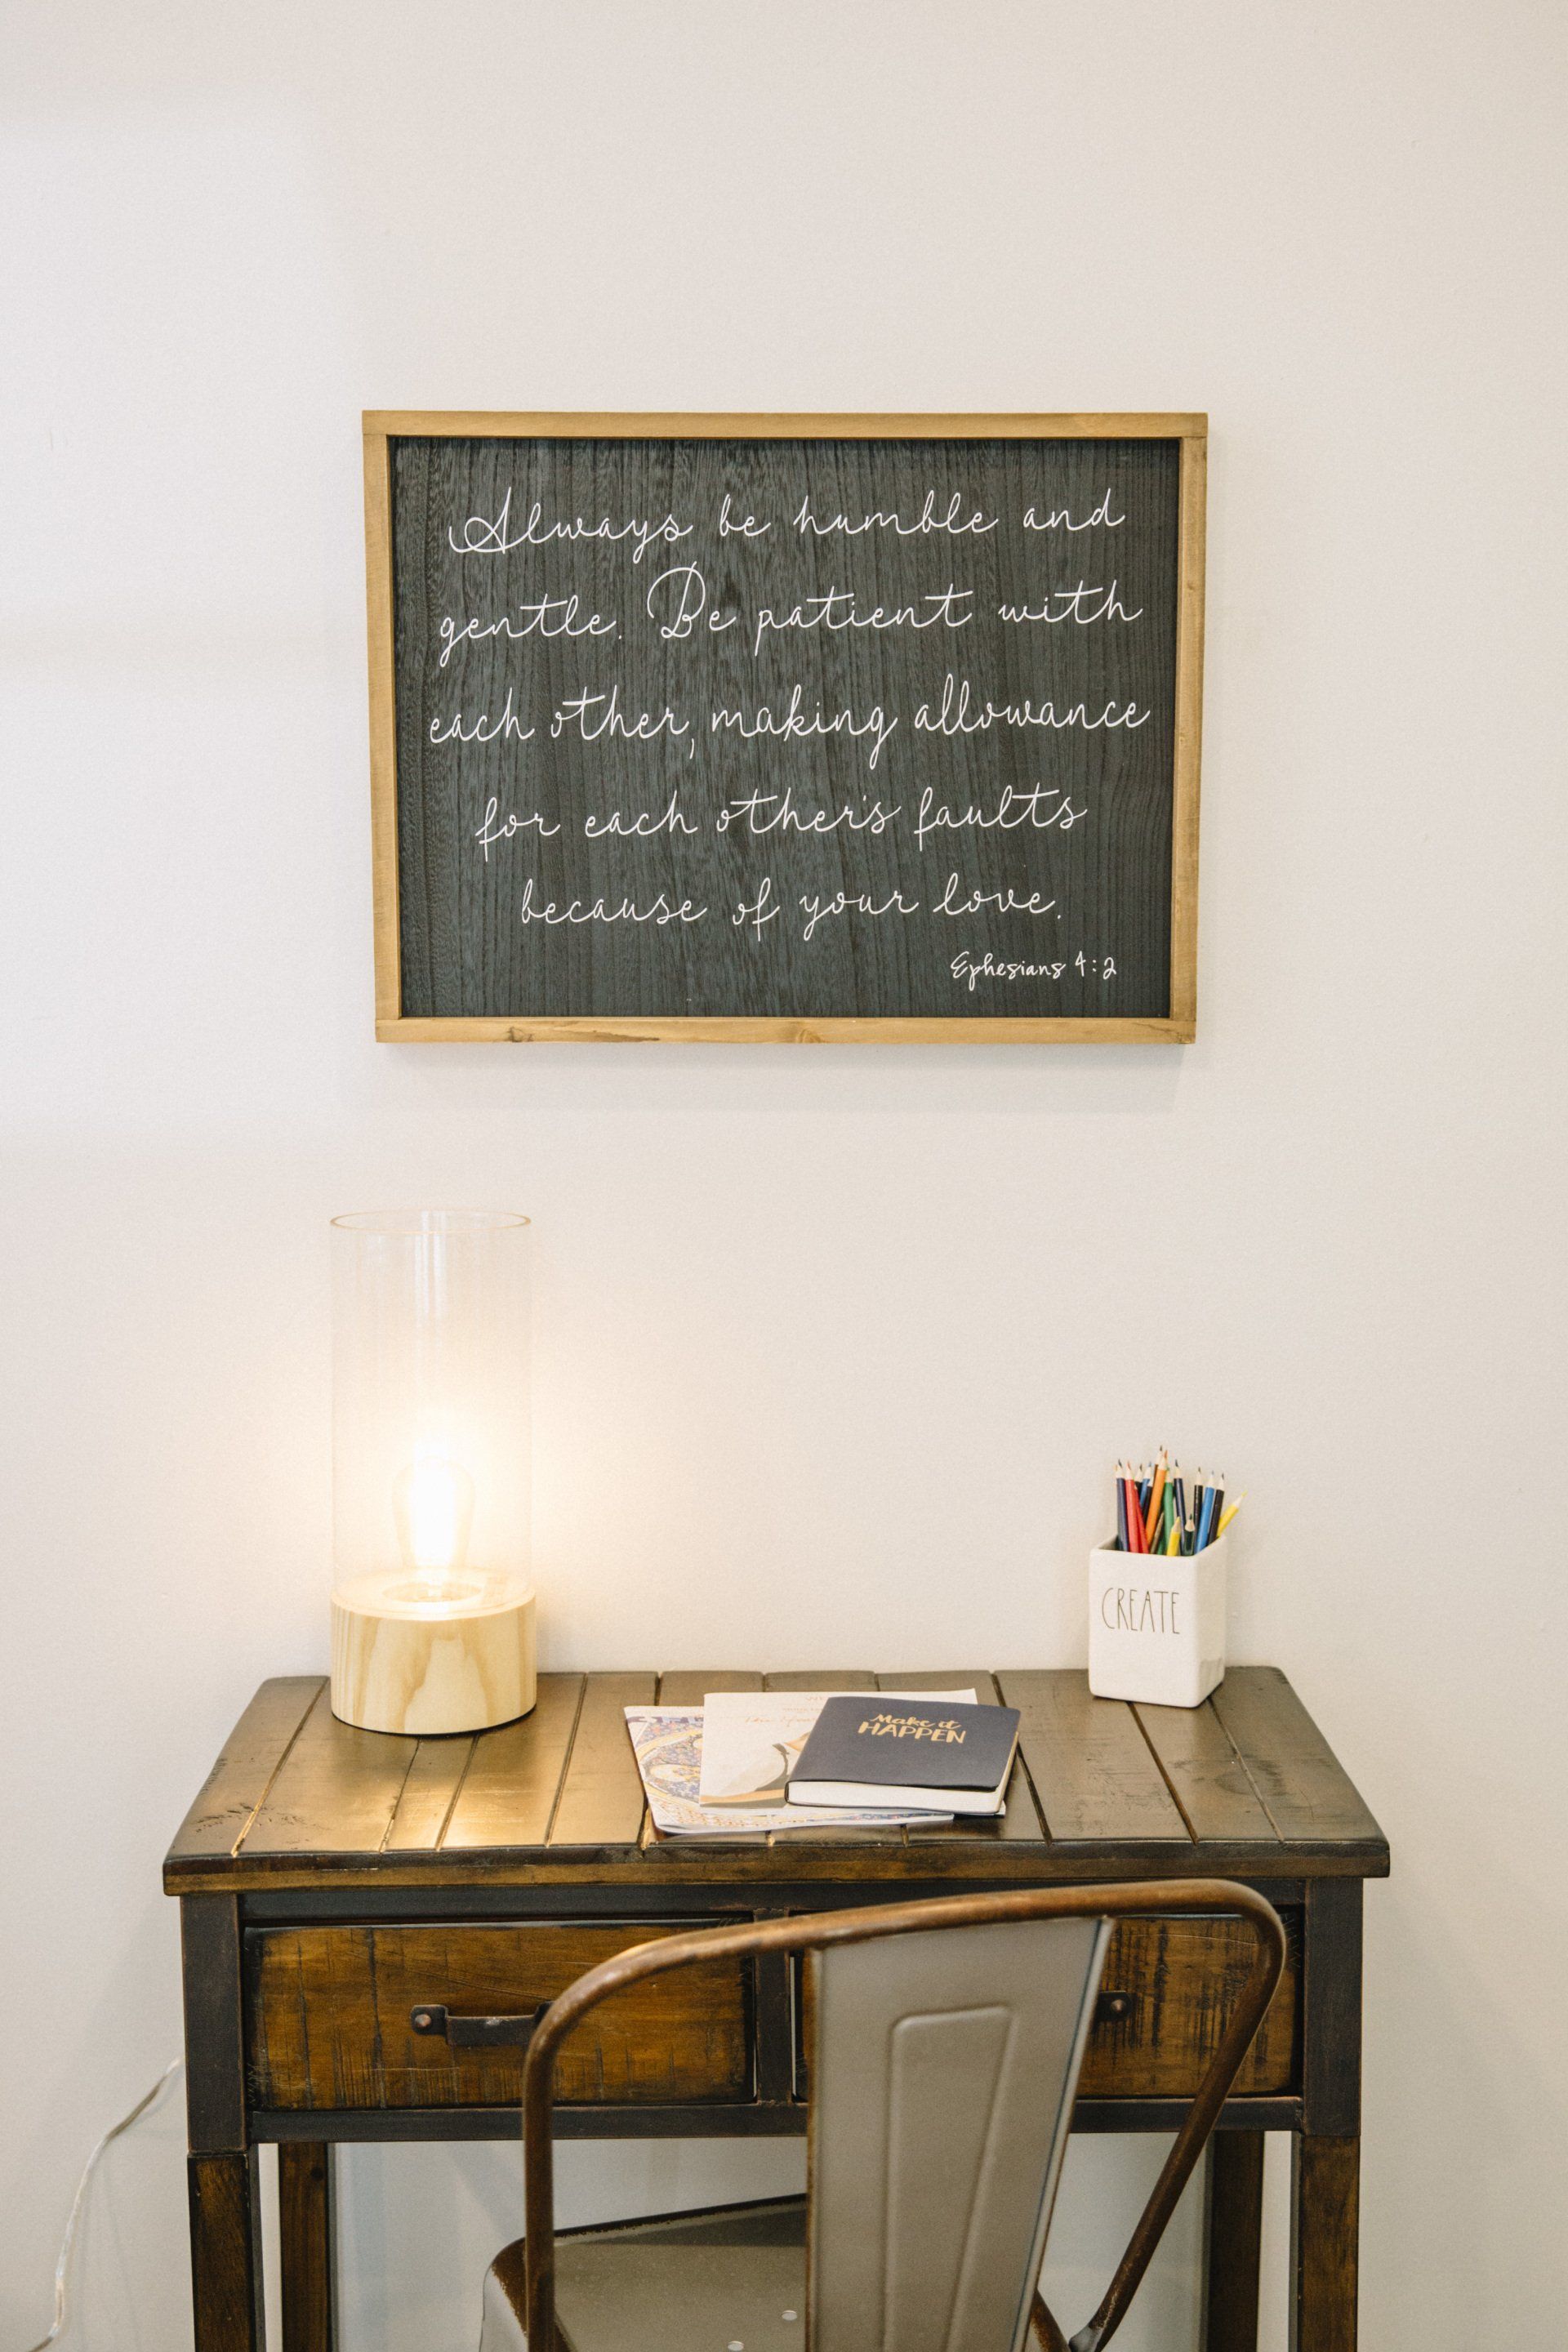 Always be humble and
gentle. Be patient with
each other, making allowance
for each other's faults
because of your love.
Ephesians 4:2
CREATE
Make it
HAPPEN